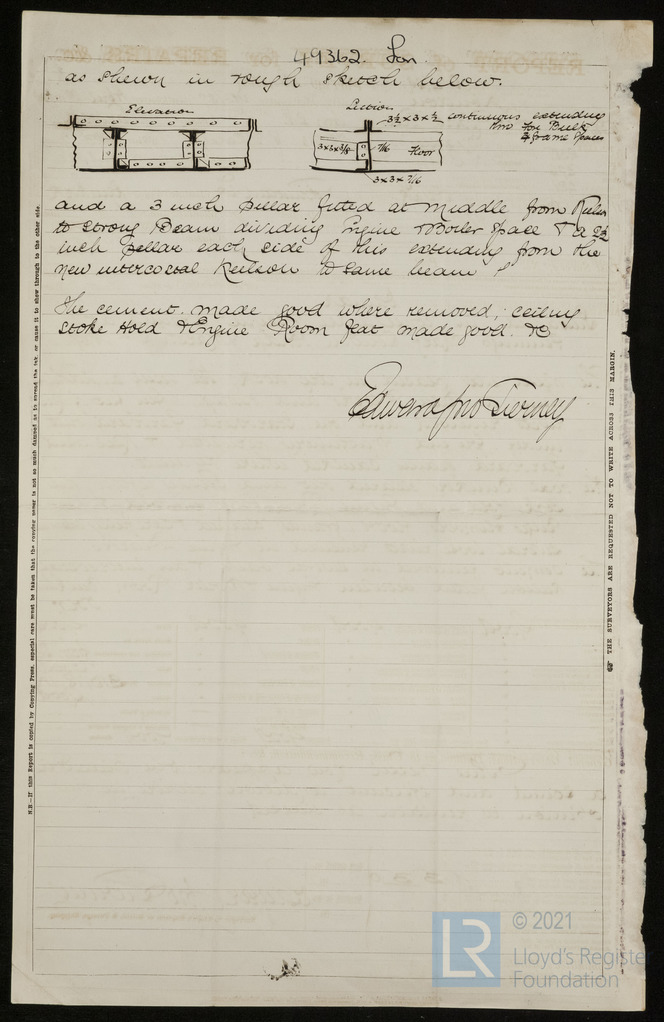 49362. Lon
as shewn in rough sketch below.
Elevation
Section
3½ x 3 x ½ continuous extending
two for Bulk
4 frame spaces
3 x 3 x 7/16
7/16
Floor
3 x 3 x 7/16
and a 3 inch pillar fitted at middle from
to Strong Beam dividing Engine & Boiler Space & a 2½
inch pillar each side of this extending from the
new intercostal Keelson to same beam
The cement made good where removed, ceiling
Stoke Hold & Engine Room flat made good. &c
Edward Jno Tierney
N.B.—If this Report is copied by Copying Press, especial care must be taken that the copying paper is not so much damped as to spread the ink, or cause it to show through to the other side.
THE SURVEYORS ARE REQUESTED NOT TO WRITE ACROSS THIS MARGIN.
LR
© 2021
Lloyd's Register
Foundation